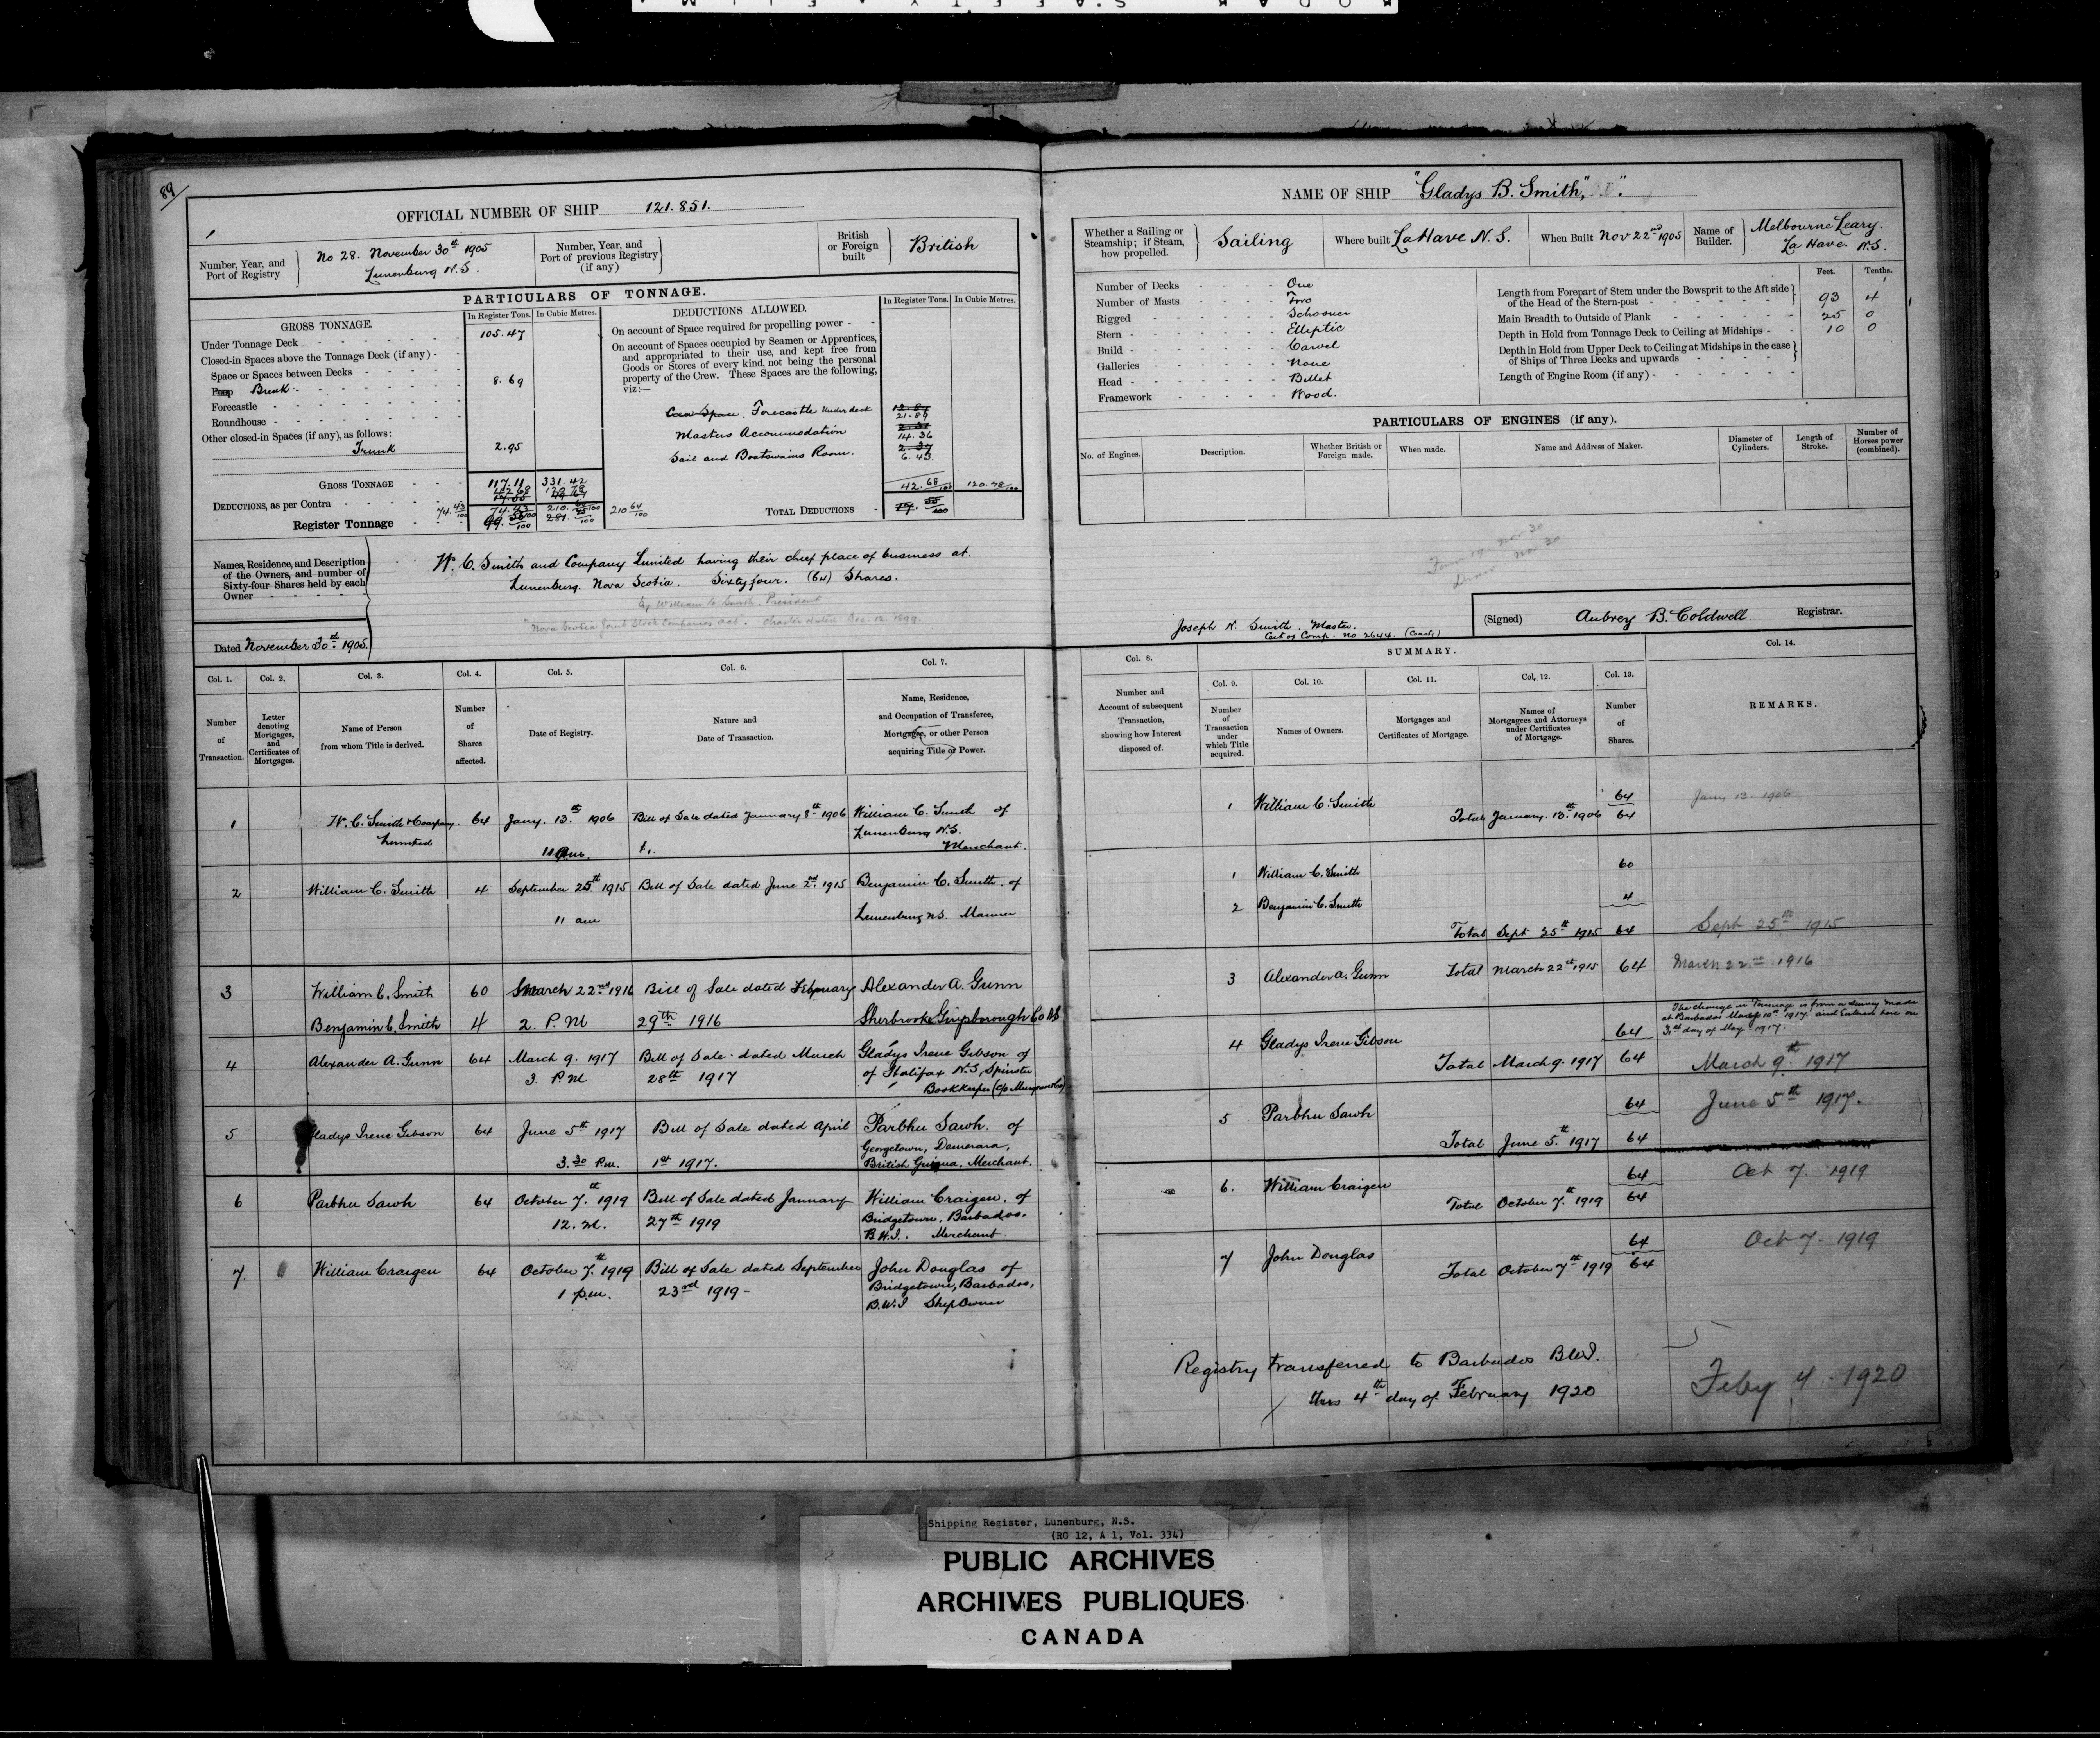 89
OFFICIAL NUMBER OF SHIP 121.851.
Number, Year, and Port of Registry
No 28. November 30th 1905
Lunenburg N.S.
Number, Year, and Port of previous Registry (if any)
British or Foreign built
British
PARTICULARS OF TONNAGE.
GROSS TONNAGE.
In Register Tons. In Cubic Metres.
Under Tonnage Deck 105.47
Closed-in Spaces above the Tonnage Deck (if any)
Space or Spaces between Decks
Poop Break 8.69
Forecastle
Roundhouse
Other closed-in Spaces (if any), as follows:
Trunk 2.95
GROSS TONNAGE 117.11 331.42
DEDUCTIONS, as per Contra 42.68
Register Tonnage 74.43
74.43/100
210 64/100
DEDUCTIONS ALLOWED.
In Register Tons. In Cubic Metres.
On account of Space required for propelling power
On account of Spaces occupied by Seamen or Apprentices,
and appropriated to their use, and kept free from
Goods or Stores of every kind, not being the personal
property of the Crew. These Spaces are the following,
viz:—
Crew Space. Forecastle Under deck 21.89
Masters Accommodation 14.36
Sail and Boatswains Room. 6.43
42.68/100 120.78/100
TOTAL DEDUCTIONS 17.55/100
Names, Residence, and Description
of the Owners, and number of
Sixty-four Shares held by each
Owner
W. C. Smith and Company Limited having their chief place of business at
Lunenburg. Nova Scotia. Sixty four. (64) Shares.
by William C. Smith. President
"Nova Scotia Joint Stock Companies Act. Charter dated Dec. 12. 1899.
Dated November 30th 1905.
Col. 1. Col. 2. Col. 3. Col. 4. Col. 5. Col. 6. Col. 7.
Number of Transaction.
Letter denoting Mortgages, and Certificates of Mortgages.
Name of Person from whom Title is derived.
Number of Shares affected.
Date of Registry.
Nature and Date of Transaction.
Name, Residence, and Occupation of Transferee, Mortgagee, or other Person acquiring Title or Power.
1 W. C. Smith & Company 64 Jany. 13th 1906 Bill of Sale dated January 8th 1906 William C. Smith of
Limited Lunenburg N.S.
Merchant.
2 William C. Smith 4 September 25th 1915 Bill of Sale dated June 2nd 1915 Benjamin C. Smith. of
11 am Lunenburg N.S. Mariner
3 William C. Smith 60 March 22nd 1916 Bill of Sale dated February Alexander A. Gunn
Benjamin C. Smith 4 2. P.M 29th 1916 Sherbrooke Guysborough Co NS
4 Alexander A. Gunn 64 March 9. 1917 Bill of Sale dated March Gladys Irene Gibson of
3. P.M. 28th 1917 of Halifax N.S, Spinster
Bookkeeper
5 Gladys Irene Gibson 64 June 5th 1917 Bill of Sale dated April Parbhu Sawh. of
3.30 P.m. 1st 1917. Georgetown, Demerara,
British Guiana. Merchant.
6 Parbhu Sawh 64 October 7th 1919 Bill of Sale dated January William Craigen. of
12. M. 27th 1919 Bridgetown, Barbados.
B.W.I. Merchant
7. William Craigen 64 October 7th 1919 Bill of Sale dated September John Douglas of
1 p.m. 23rd 1919 - Bridgetown, Barbados,
B.W.I Ship Owner
NAME OF SHIP "Gladys B. Smith,"
Whether a Sailing or Steamship; if Steam, how propelled.
Sailing
Where built LaHave N.S.
When Built Nov 22nd 1905
Name of Builder.
Melbourne Leary.
La Have. N.S.
Number of Decks One
Number of Masts Two
Rigged Schooner
Stern Elliptic
Build Carvel
Galleries None
Head Billet
Framework Wood.
Feet. Tenths.
Length from Forepart of Stem under the Bowsprit to the Aft side
of the Head of the Stern-post 93 4
Main Breadth to Outside of Plank 25 0
Depth in Hold from Tonnage Deck to Ceiling at Midships 10 0
Depth in Hold from Upper Deck to Ceiling at Midships in the case
of Ships of Three Decks and upwards
Length of Engine Room (if any)
PARTICULARS OF ENGINES (if any).
No. of Engines.
Description.
Whether British or Foreign made.
When made.
Name and Address of Maker.
Diameter of Cylinders.
Length of Stroke.
Number of Horses power (combined).
Nov 30
Nov 30
Joseph N. Smith. Master.
Cert of Comp. No 2644. (Coasts)
(Signed) Aubrey B. Coldwell. Registrar.
Col. 8. SUMMARY. Col. 14.
Col. 9. Col. 10. Col. 11. Col. 12. Col. 13.
Number and Account of subsequent Transaction, showing how Interest disposed of.
Number of Transaction under which Title acquired.
Names of Owners.
Mortgages and Certificates of Mortgage.
Names of Mortgagees and Attorneys under Certificates of Mortgage.
Number of Shares.
REMARKS.
1 William C. Smith 64 Jany 13. 1906
Total January. 13th 1906 64
1 William C. Smith 60
2 Benjamin C. Smith 4
Total Sept 25th 1915 64 Sept 25th 1915
3 Alexander A. Gunn Total March 22nd 1915 64 March 22nd 1916
The change in Tonnage is from a survey made
at Barbados March 10th 1917. and Entered here on
3rd day of May 1917.
4 Gladys Irene Gibson 64
Total March 9. 1917 64 March 9th 1917
5 Parbhu Sawh 64 June 5th 1917.
Total June 5th 1917 64
6. William Craigen 64 Oct 7. 1919
Total October 7th 1919 64
7 John Douglas 64 Oct 7. 1919
Total October 7th 1919 64
Registry transferred to Barbados BWI.
this 4th day of February 1920
Feby 4. 1920
Shipping Register, Lunenburg, N.S.
(RG 12, A 1, Vol. 334)
PUBLIC ARCHIVES
ARCHIVES PUBLIQUES
CANADA